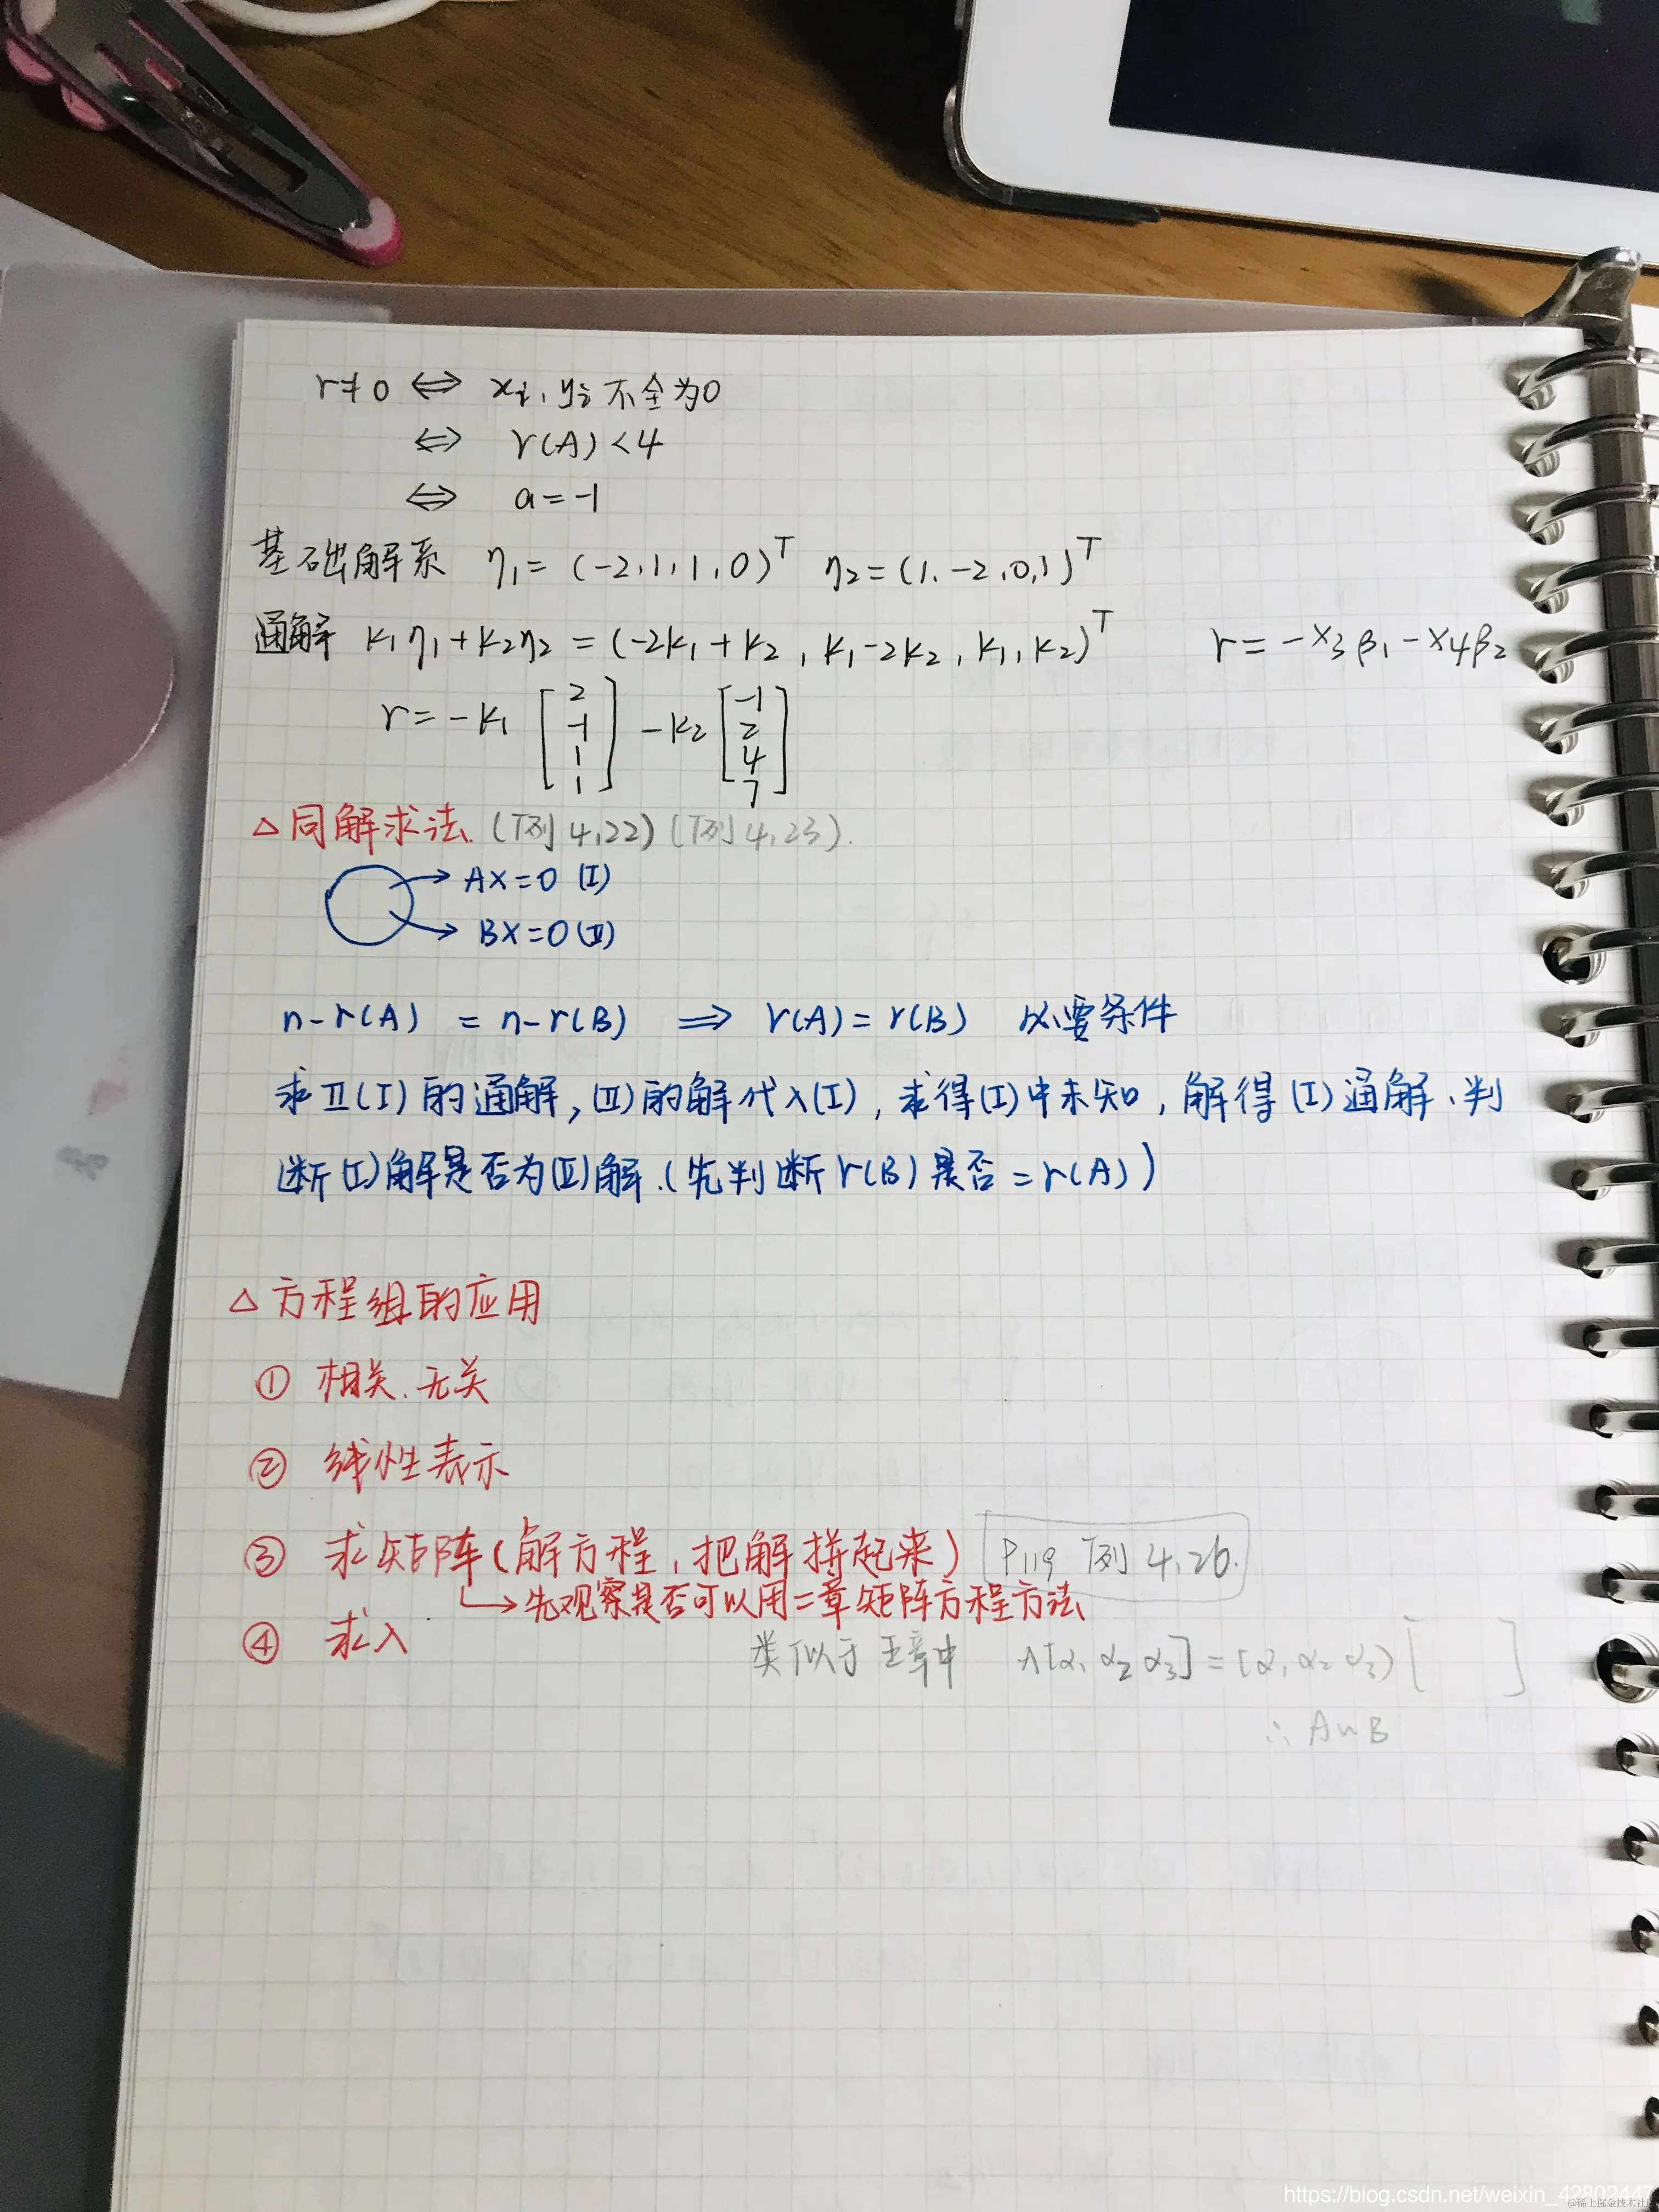 r≠0 ⇔ xi, yi 不全为0
⇔ r(A)<4
⇔ a=-1
基础解系 η1=(-2,1,1,0)^T η2=(1,-2,0,1)^T
通解 k1η1+k2η2=(-2k1+k2, k1-2k2, k1, k2)^T r=-x3β1-x4β2
r=-k1 [2 -1 1 1] -k2 [-1 2 4 7]
△同解求法 (例4.22)(例4.23).
AX=0 (I)
BX=0 (II)
n-r(A) = n-r(B) ⇒ r(A)=r(B) 必要条件
求II(I)的通解,(II)的解代入(I),求得(I)中未知,解得(I)通解、判
断(I)解是否为(II)解.(先判断r(B)是否=r(A))
△方程组的应用
① 相关、无关
② 线性表示
③ 求矩阵(解方程,把解拼起来) P119 例4.26.
→先观察是否可以用二章矩阵方程方法
④ 求λ
类似于五章中 A[α1 α2 α3]=[α1 α2 α3)[ ]
∴A∽B
https://blog.csdn.net/weixin_42802447
@稀土掘金技术社区